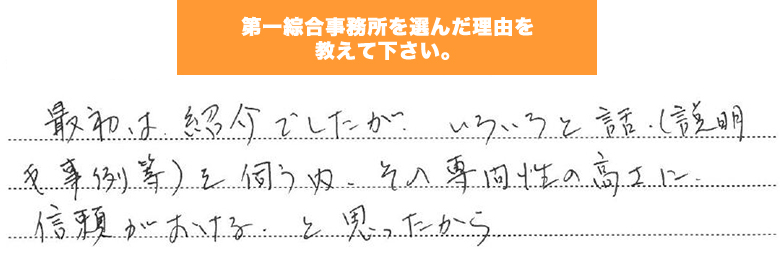 第一綜合事務所を選んだ理由を
教えて下さい。
最初は、紹介でしたが、いろいろと話、(説明
や事例等)を伺う内、その専門性の高さに
信頼がおける、と思ったから